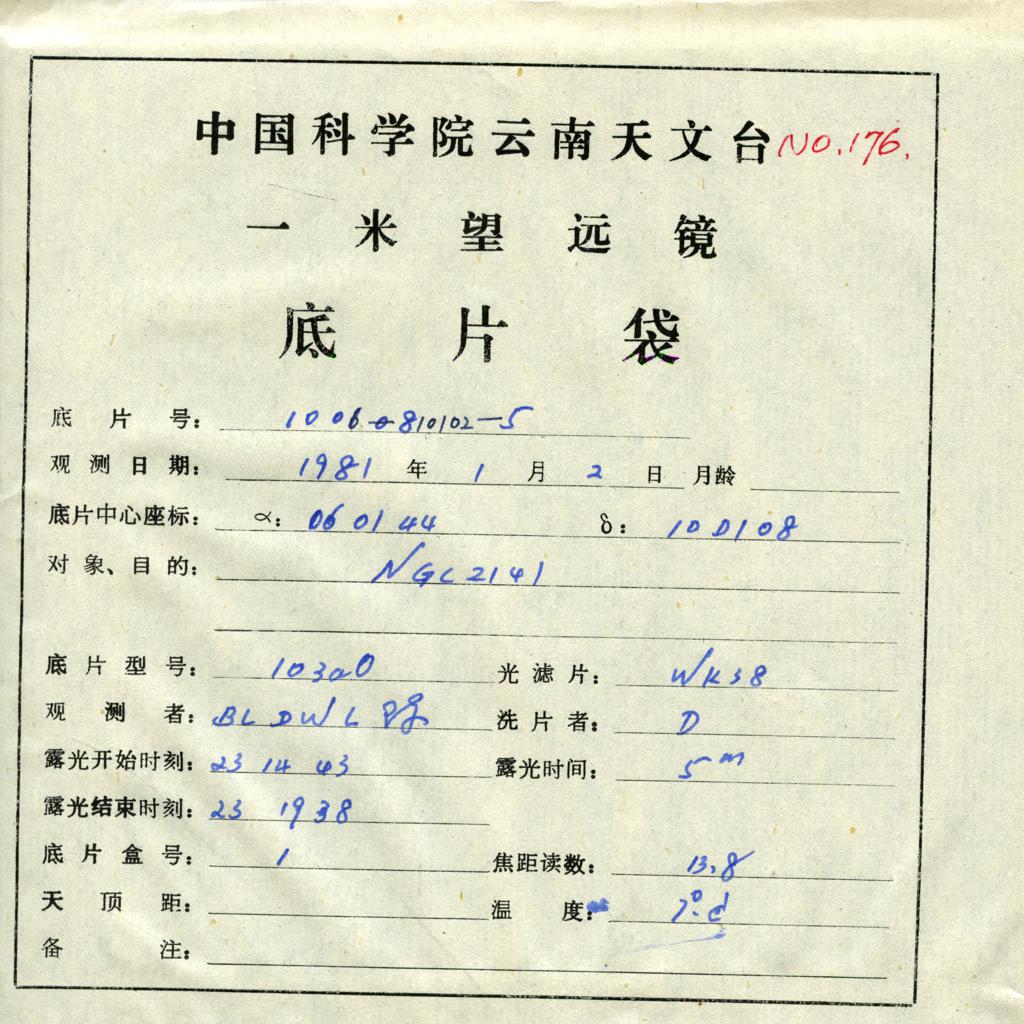 中国科学院云南天文台 NO.176.
一米望远镜
底片袋
底片号: 1006-810102-5
观测日期: 1981年1月2日 月龄
底片中心座标: α: 06 01 44 δ: 10 0108
对象、目的: NGC2141
底片型号: 103aO 光滤片:
观测者: BL DW L 洗片者: D
露光开始时刻: 23 14 43 露光时间: 5m
露光结束时刻: 23 19 38
底片盒号: 1 焦距读数: 13.8
天顶距: 温度: 7°.
备注: